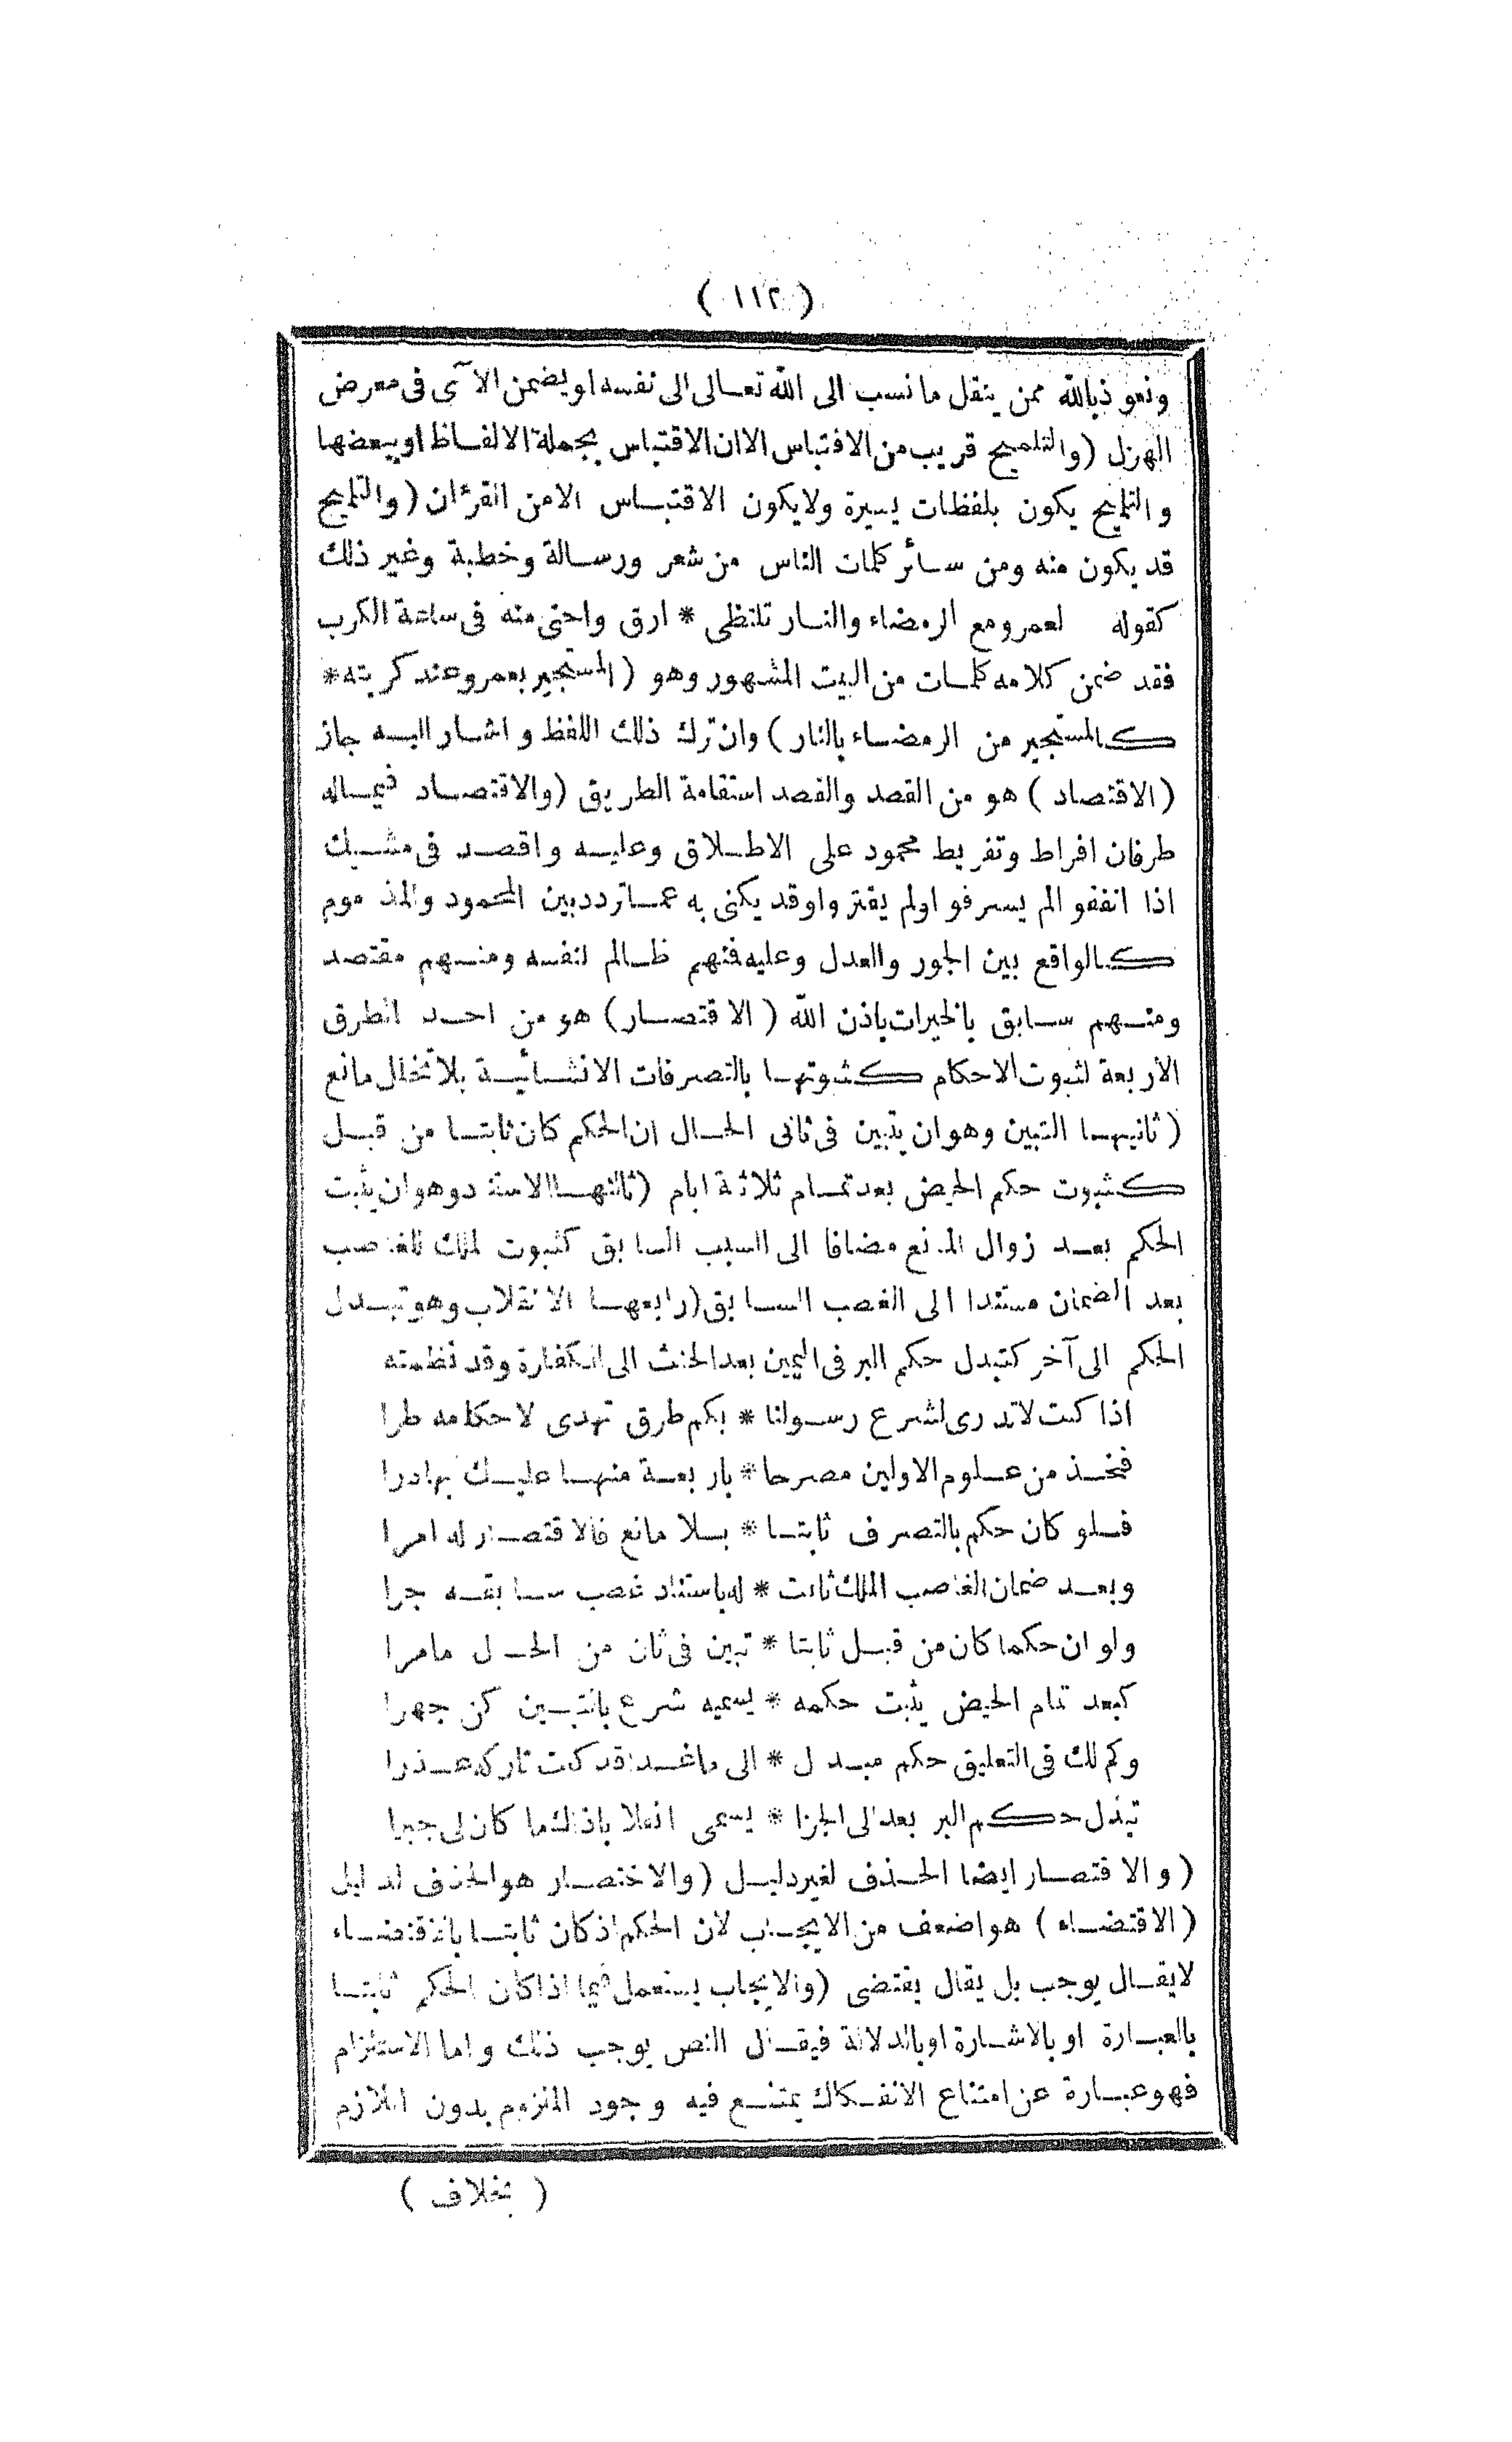 ( ١١٢ )
ونعوذ بالله ممن ينقل ما نسب الى الله تعالى الى نفسه او يضمن الآى فى معرض
الهزل (والتلميح قريب من الاقتباس الا ان الاقتباس بجملة الالفاظ او ببعضها
والتلميح يكون بلفظات يسيرة ولا يكون الاقتباس الا من القرءان (والتلميح
قد يكون منه ومن سائر كلمات الناس من شعر ورسالة وخطبة وغير ذلك
كقوله لعمرو مع الرمضاء والنار تلتظى * ارق واحنى منه فى ساعة الكرب
فقد ضمن كلامه كلمات من البيت المشهور وهو (المستجير بعمرو عند كربته *
كالمستجير من الرمضاء بالنار) وان ترك ذلك اللفظ واشار اليه جاز
(الاقتصاد) هو من القصد والقصد استقامة الطريق (والاقتصاد فيما له
طرفان افراط وتفريط محمود على الاطلاق وعليه واقصد فى مشيك
اذا انفقوا لم يسرفوا ولم يقتروا وقد يكنى به عما تردد بين المحمود والمذموم
كالواقع بين الجور والعدل وعليه فمنهم ظالم لنفسه ومنهم مقتصد
ومنهم سابق بالخيرات باذن الله (الاقتصار) هو من احد الطرق
الاربعة لثبوت الاحكام كثبوتها بالتصرفات الانشائية بلا تخلل مانع
(ثانيها التبين وهو ان يتبين فى ثانى الحال ان الحكم كان ثابتا من قبل
كثبوت حكم الحيض بعد تمام ثلاثة ايام (ثالثها الاستناد وهو ان يثبت
الحكم بعد زوال المانع مضافا الى السبب السابق كثبوت الملك للغاصب
بعد الضمان مستندا الى الغصب السابق (رابعها الانقلاب وهو تبدل
الحكم الى آخر كتبدل حكم البر فى اليمين بعد الحنث الى الكفارة وقد نظمته
اذا كنت لا تدرى لشرع رسولنا * بكم طرق تهدى لاحكامه طرا
فخذ من علوم الاولين مصرحا * باربعة منها عليك بها درا
فلو كان حكم بالتصرف ثابتا * بلا مانع فالاقتصار له امرا
وبعد ضمان الغاصب الملك ثابت * له باستناد غصب سابقه جرا
ولو ان حكما كان من قبل ثابتا * تبين فى ثان من الحال ما مرا
كبعد تمام الحيض يثبت حكمه * يسميه شرع بالتبيين كن جهرا
وكم لك فى التعليق حكم مبدل * الى ما غدا قد كنت تاركه عذرا
تبدل حكم البر بعد الى الجزا * يسمى انقلابا ذاك ما كان لى جبرا
(والاقتصار ايضا الحذف لغير دليل (والاختصار هو الحذف لدليل
(الاقتضاء) هو اضعف من الايجاب لان الحكم اذ كان ثابتا بالاقتضاء
لا يقال يوجب بل يقال يقتضى (والايجاب يستعمل فيما اذا كان الحكم ثابتا
بالعبارة او بالاشارة او بالدلالة فيقال النص يوجب ذلك واما الاستلزام
فهو عبارة عن امتناع الانفكاك يمتنع فيه وجود الملزوم بدون اللازم
( بخلاف )